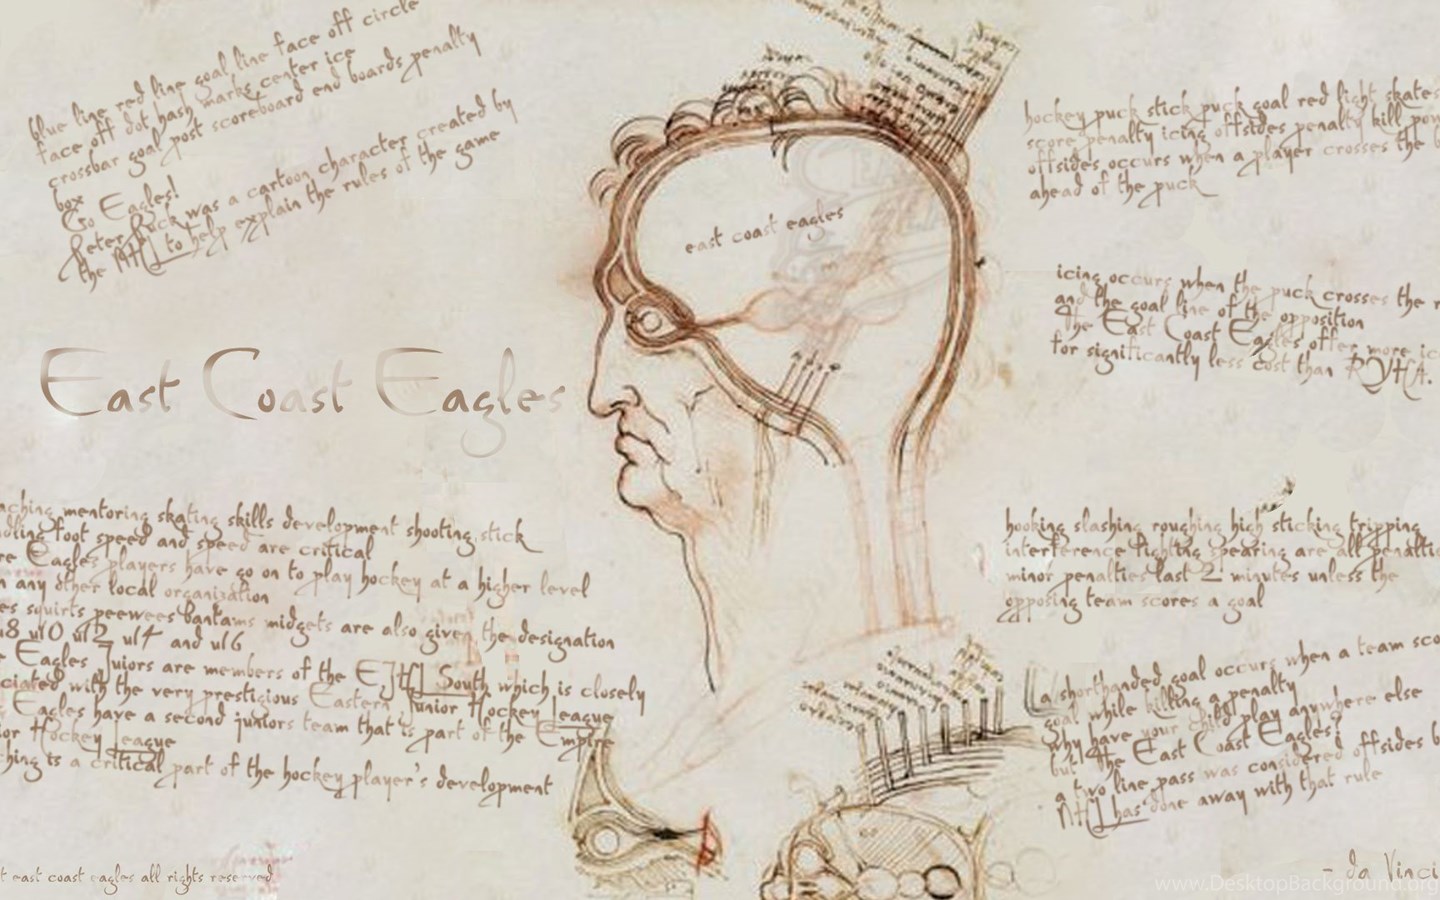 blue line red line goal line face off circle
face off dot hash marks center ice
crossbar goal post scoreboard end boards penalty
box
Go Eagles!
Peter Puck was a cartoon character created by
the NHL to help explain the rules of the game
east coast eagles
hockey puck stick puck goal red light skates
score penalty icing offsides penalty kill pow
offsides occurs when a player crosses the b
ahead of the puck
icing occurs when the puck crosses the r
and the goal line of the opposition
The East Coast Eagles offer more ic
for significantly less cost than RYHA.
East Coast Eagles
aching mentoring skating skills development shooting stick
dling foot speed and speed are critical
re Eagles players have go on to play hockey at a higher level
n any other local organization
es squirts peewees bantams midgets are also given the designation
u8 u10 u12 u14 and u16
e Eagles Juiors are members of the EJHL South which is closely
ciated with the very prestigious Eastern Junior Hockey League
Eagles have a second juniors team that is part of the Empire
ior Hockey League
ching is a critical part of the hockey player's development
hooking slashing roughing high sticking tripping
interference fighting spearing are all penaltie
minor penalties last 2 minutes unless the
opposing team scores a goal
a shorthanded goal occurs when a team sco
goal while killing a penalty
why have your child play anywhere else
but the East Coast Eagles?
a two line pass was considered offsides b
NHL has done away with that rule
t east coast eagles all rights reserved
- da Vinci
www.DesktopBackground.org